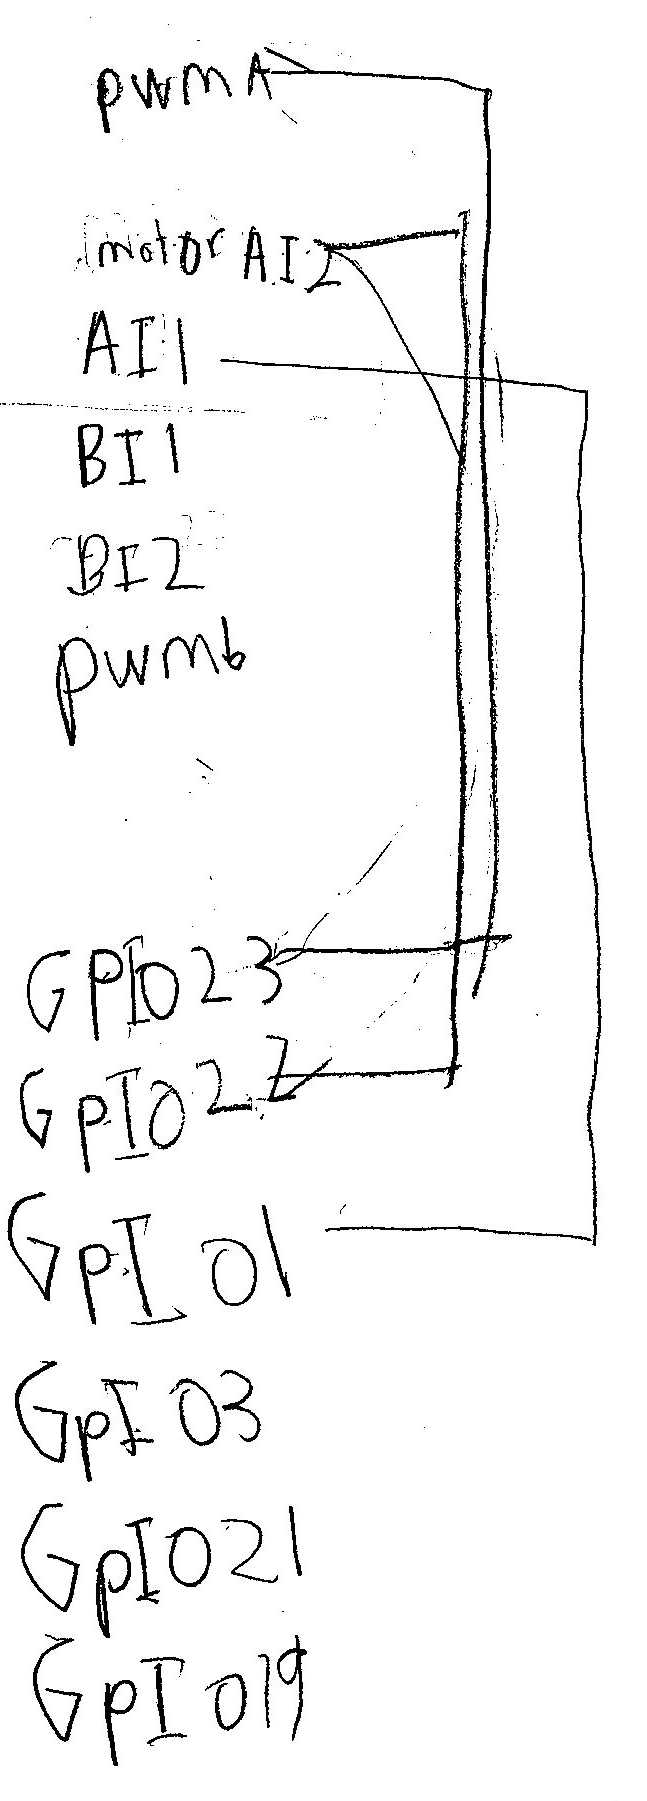 pwm A
motor AI2
AI1
BI1
BI2
pwmb
GPIO23
GpIO22
GpIO1
GpIO3
GpIO21
GpIO19